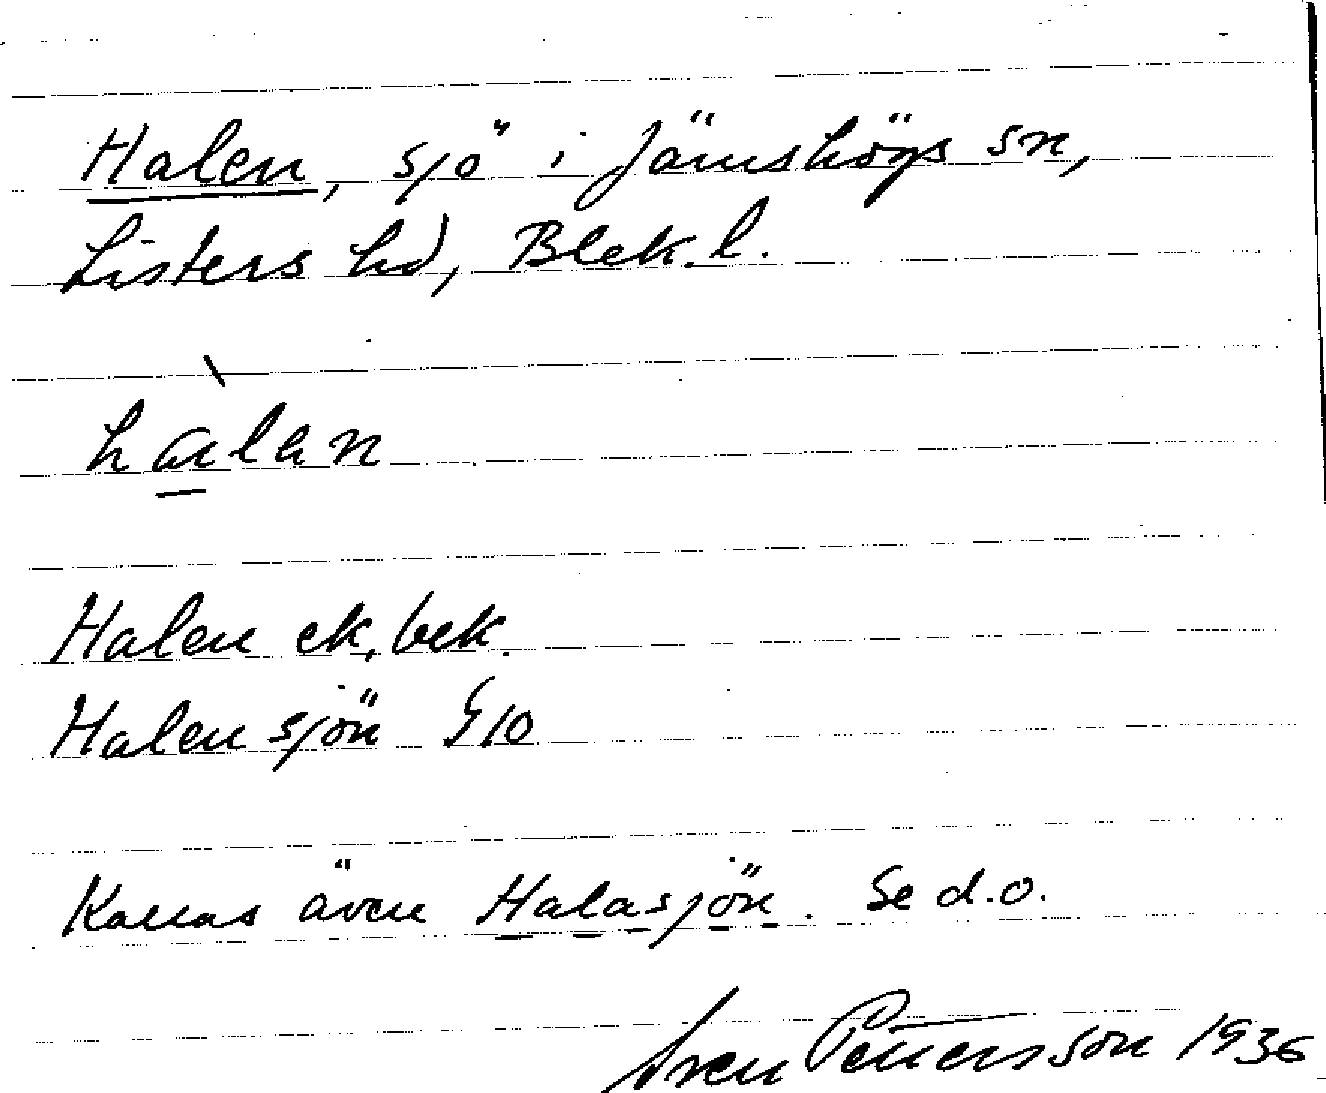 Halen, sjö i Jämshögs sn,
Listers hd, Blek. l.
hàlan
Halen ek. bek.
Halensjön G10
Kallas även Halasjön. Se d.o.
Sven Pettersson 1936